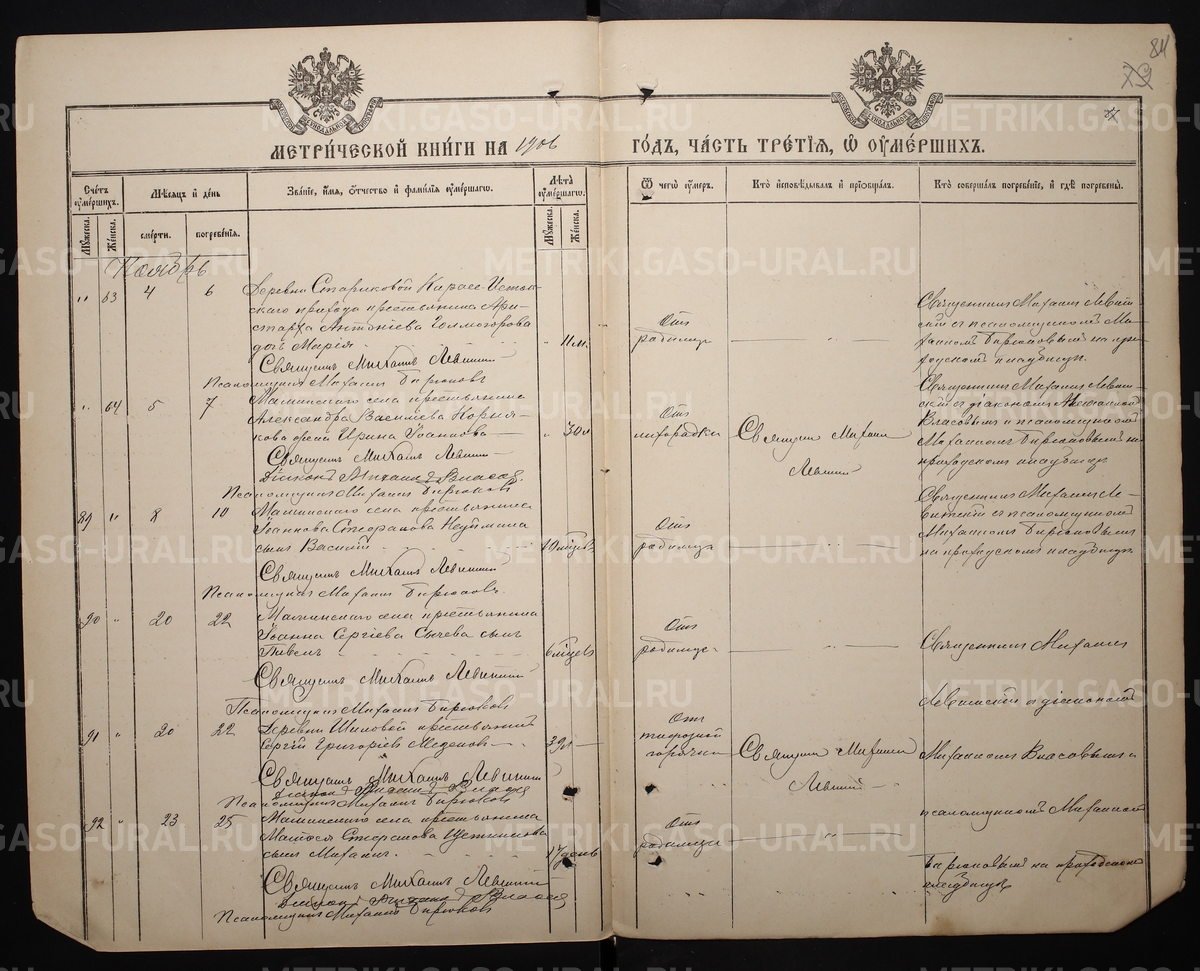 84
73
МЕТРИ́ЧЕСКОЙ КНИ́ГИ НА 1906
ГО́ДЪ, ЧА́СТЬ ТРЕ́ТІѦ, Ѡ ОУМЕ́РШИХЪ.
Счетъ оумершихъ.
Мѣсѧцъ и день
Званіе, имѧ, отчество и фамиліѧ оумершагѡ.
Лѣта оумершагѡ.
Ѿ чегѡ оумеръ.
Кто исповѣдывалъ и пріобщалъ.
Кто совершалъ погребеніе, и гдѣ погребены.
Мужеска.
Женска.
смерти.
погребеніѧ.
Мужеска.
Женска.
Ноябрь
" 63 4 6
Деревни Стариковой
скаго прихода крестьянина Ари-
старха Антоніева Голмогорова
дочь Марія
11 м.
Отъ
родимца
Священникъ Михаилъ Левит-
скій съ псаломщикомъ Ми-
хаиломъ Бирюковымъ на при-
ходскомъ кладбищѣ
Священникъ Михаилъ Левитскій
Псаломщикъ Михаилъ Бирюковъ
" 64 5 7
Маминскаго села крестьянина
Александра Васильева
жена Ирина Іоаннова
30 л
Отъ
лихорадки
Священникъ Михаилъ
Левитскій
Священникъ Михаилъ Левит-
скій съ діакономъ
Власовымъ и псаломщикомъ
Михаиломъ Бирюковымъ на
приходскомъ кладбищѣ
Священникъ Михаилъ Левитскій
Діаконъ Михаилъ Власовъ
Псаломщикъ Михаилъ Бирюковъ
89 " 8 10
Маминскаго села крестьянина
Іоанна Стефанова
сынъ Василій
10 мѣсяц.
Отъ
родимца
Священникъ Михаилъ Ле-
витскій съ псаломщикомъ
Михаиломъ Бирюковымъ
на приходскомъ кладбищѣ
Священникъ Михаилъ Левитскій
Псаломщикъ Михаилъ Бирюковъ
90 " 20 22
Маминскаго села крестьянина
Іоанна Сергіева Сычева сынъ
Павелъ
6 мѣсяцев
Отъ
родимца
Священникъ Михаилъ
Священникъ Михаилъ Левитскій
Левитскій съ діакономъ
Псаломщикъ Михаилъ Бирюковъ
91 " 20 22
Деревни Шиловой крестьянинъ
Сергій Григоріевъ
39 л
Отъ
горячки
Священникъ Михаилъ
Левитскій
Михаиломъ Власовымъ и
Священникъ Михаилъ Левитскій
Діаконъ Михаилъ Власовъ
Псаломщикъ Михаилъ Бирюковъ
псаломщикомъ Михаиломъ
92 " 23 25
Маминскаго села крестьянина
Матѳея Стефанова
сынъ Михаилъ.
17 день
Отъ
родимца
Бирюковымъ на приходскомъ
кладбищѣ
Священникъ Михаилъ Левитскій
Діаконъ Михаилъ Власовъ
Псаломщикъ Михаилъ Бирюковъ
METRIKI.GASO-URAL.RU